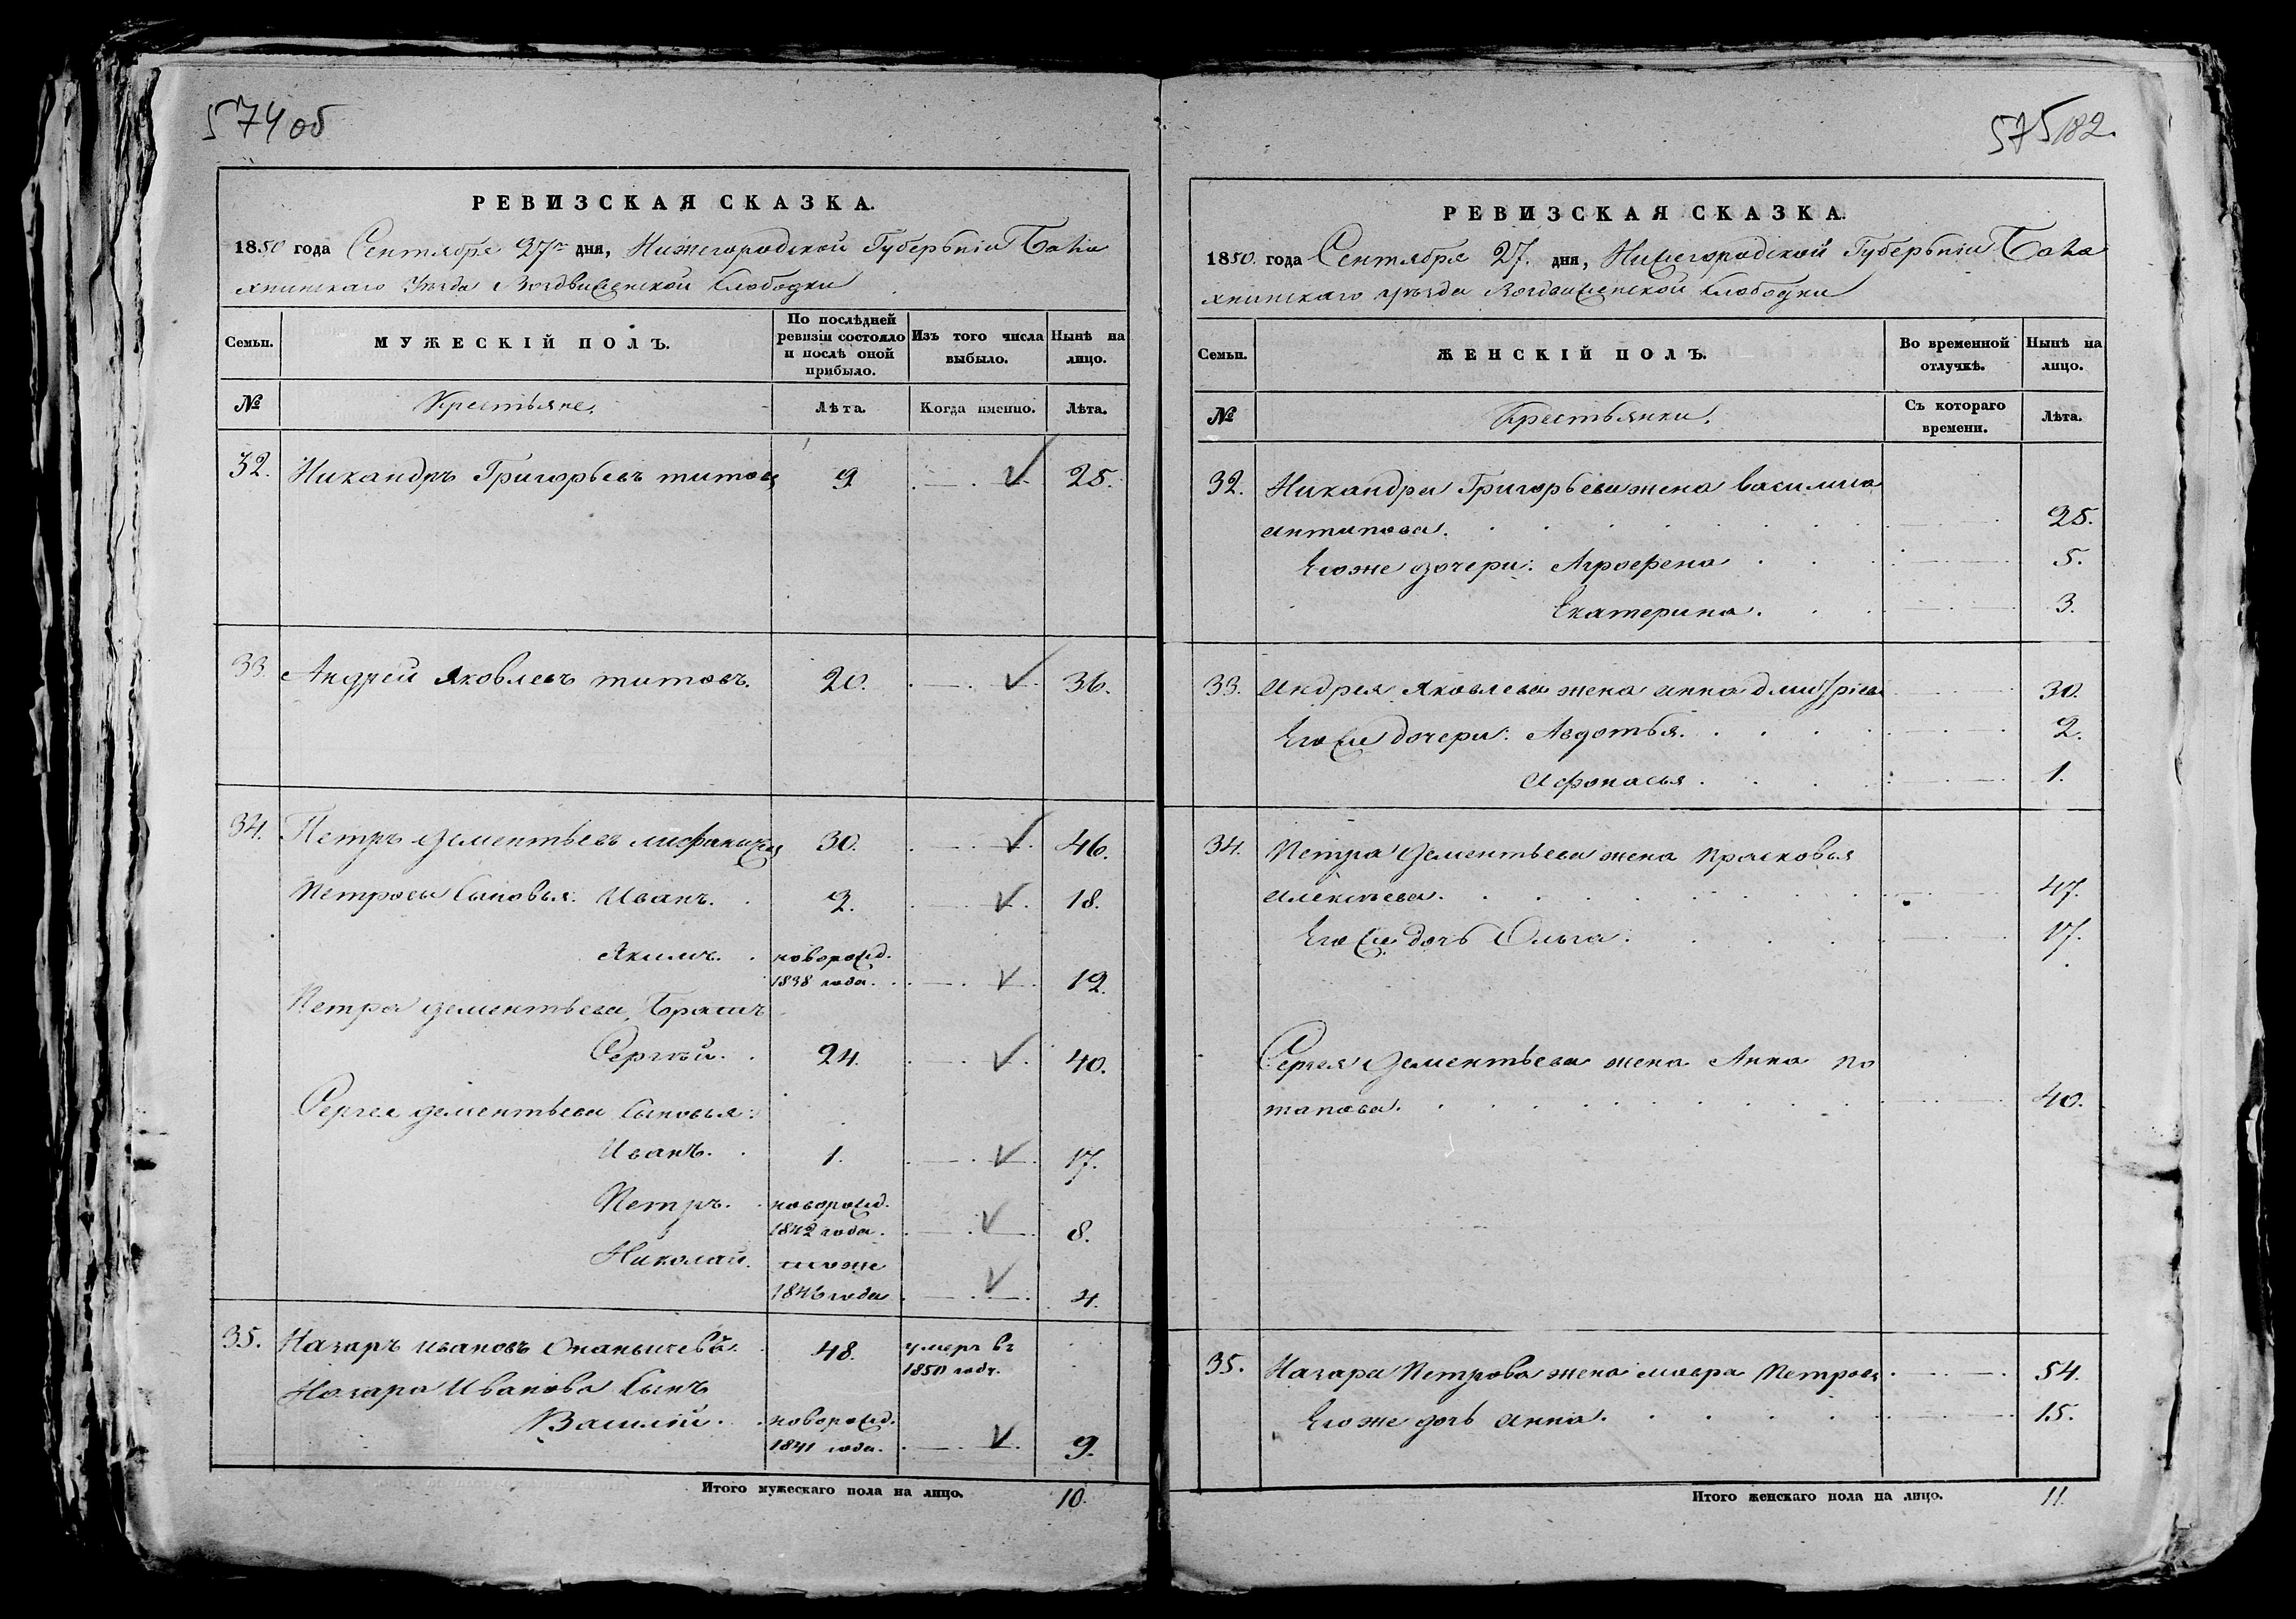 574об
РЕВИЗСКАЯ СКАЗКА.
1850 года Сентября 27го дня, Нижегородской Губерніи Бала
хнинскаго Уезда Воздвиженской Слободки
Семьи.
МУЖЕСКІЙ ПОЛЪ.
По послѣдней ревизіи состояло и послѣ оной прибыло.
Изъ того числа выбыло.
Нынѣ на лицо.
№
Крестьяне.
Лѣта.
Когда именно.
Лѣта.
32. Никандръ Григорьевъ титовъ 9 25.
33. Андрей Яковлевъ титовъ. 20. 36.
34. Петръ дементьевъ 30. 46.
Петровы Сыновья: Иванъ. 2. 18.
Якимъ. новорожд.
1838 года. 12.
Петра дементьева, Братъ
Сергѣй. 24. 40.
Сергея дементьева Сыновья:
Иванъ. 1. 17.
Петръ. новорожд.
1842 года. 8.
Николай. тоже
1846 года 4.
35. Назаръ Ивановъ Ананьичевъ. 48. умеръ въ
1850 году.
Назара Иванова Сынъ
Василій. новорожд.
1841 года. 9.
Итого мужескаго пола на лицо. 10.
575 182.
РЕВИЗСКАЯ СКАЗКА.
1850. года Сентября 27. дня, Нижегородской Губерніи Бала
хнинскаго уѣзда Воздвиженской Слободки
Семьи.
ЖЕНСКІЙ ПОЛЪ.
Во временной отлучкѣ.
Нынѣ на лицо.
№
Крестьянки.
Съ котораго времени.
Лѣта.
32. Никандра Григорьева жена василиса
антипова. 25.
Егоже дочери: Агрофена 5.
Екатерина. 3.
33. Андрея Яковлева жена анна дмитріева 30.
Егоже дочери: Авдотья. 2.
Афонасья. 1.
34. Петра Дементьева жена Прасковья
алексѣева. 47.
Егоже дочь Ольга. 17.
Сергея Дементьева жена Анна По
тапова. 40.
35. Назара Петрова жена мавра Петрова 54.
Егоже дочь анна. 15.
Итого женскаго пола на лицо. 11.